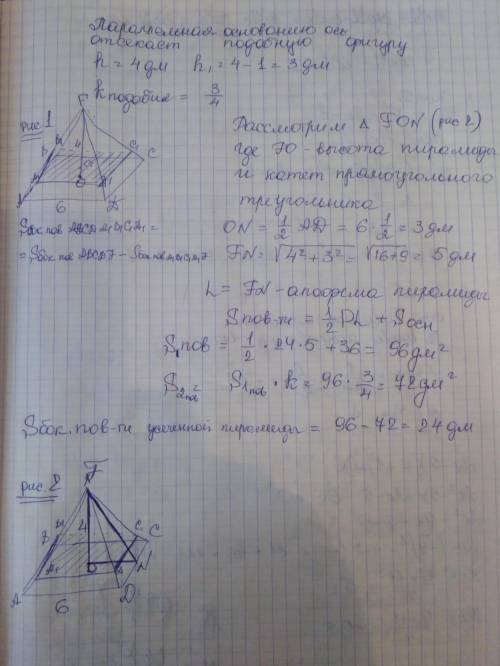 Параллельная основанию ось
отсекает подобную фигуру
h = 4 дм h₁ = 4 - 1 = 3 дм
k подобия = 3/4
рис. 1
F
4
C₁ C
O
A
D
6
Рассмотрим △ FON (рис 2)
где FO - высота пирамиды
и катет прямоугольного
треугольника
ON = 1/2 AD = 6 · 1/2 = 3 дм
FN = √4² + 3² = √16+9 = 5 дм
L = FN - апофема пирамиды
S пов-ти = 1/2 PL + S осн
S₁ пов = 1/2 · 24 · 5 + 36 = 96 дм²
S₂ пов = S₁ пов · k = 96 · 3/4 = 72 дм²
S бок. пов-ти усеченной пирамиды = 96 - 72 = 24 дм
рис. 2
F
4
C C
B
A₁ O N
A
D
6